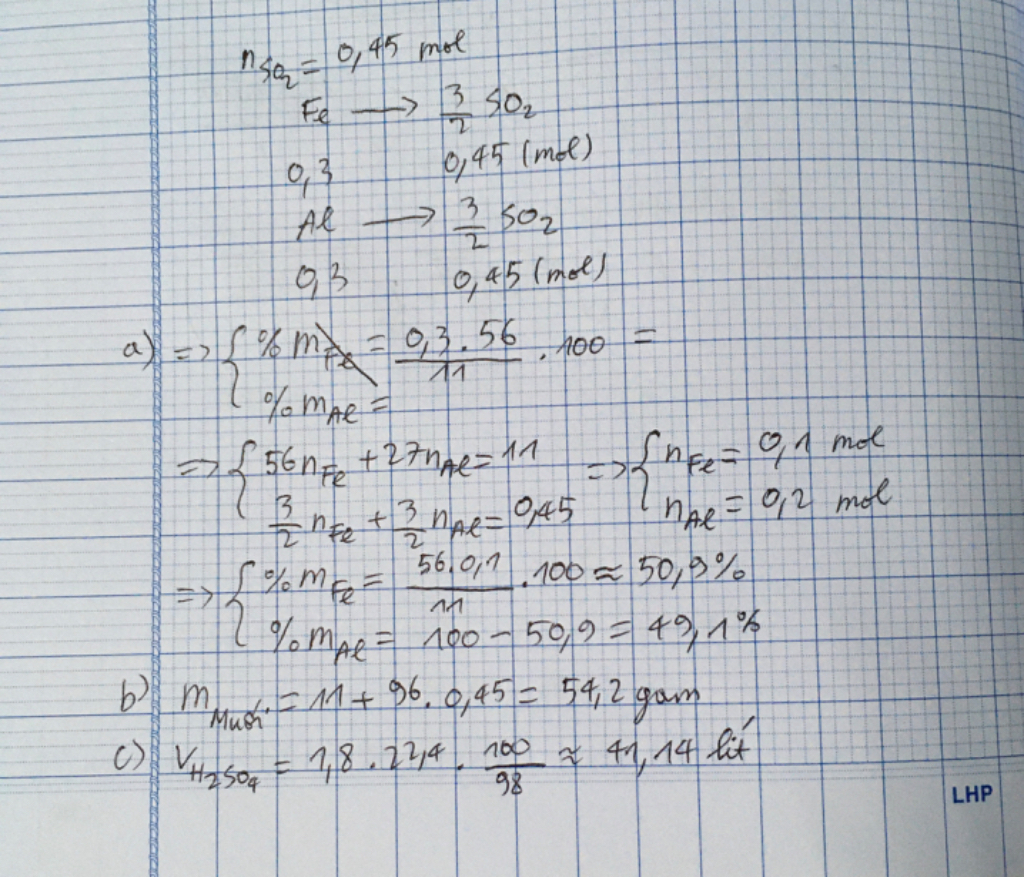 nSO₂ = 0,45 mol
Fe → 3/2 SO₂
0,3 0,45 (mol)
Al → 3/2 SO₂
0,3 0,45 (mol)
a) => { % mFe = 0,3 . 56 / 11 . 100 =
% mAl =
=> { 56nFe + 27nAl = 11 => { nFe = 0,1 mol
3/2 nFe + 3/2 nAl = 0,45 nAl = 0,2 mol
=> { % mFe = 56.0,1 / 11 . 100 ≈ 50,9%
% mAl = 100 - 50,9 = 49,1%
b) mMuối = 11 + 96 . 0,45 = 54,2 gam
c) VH₂SO₄ = 1,8 . 22,4 . 100/98 ≈ 41,14 lít
LHP